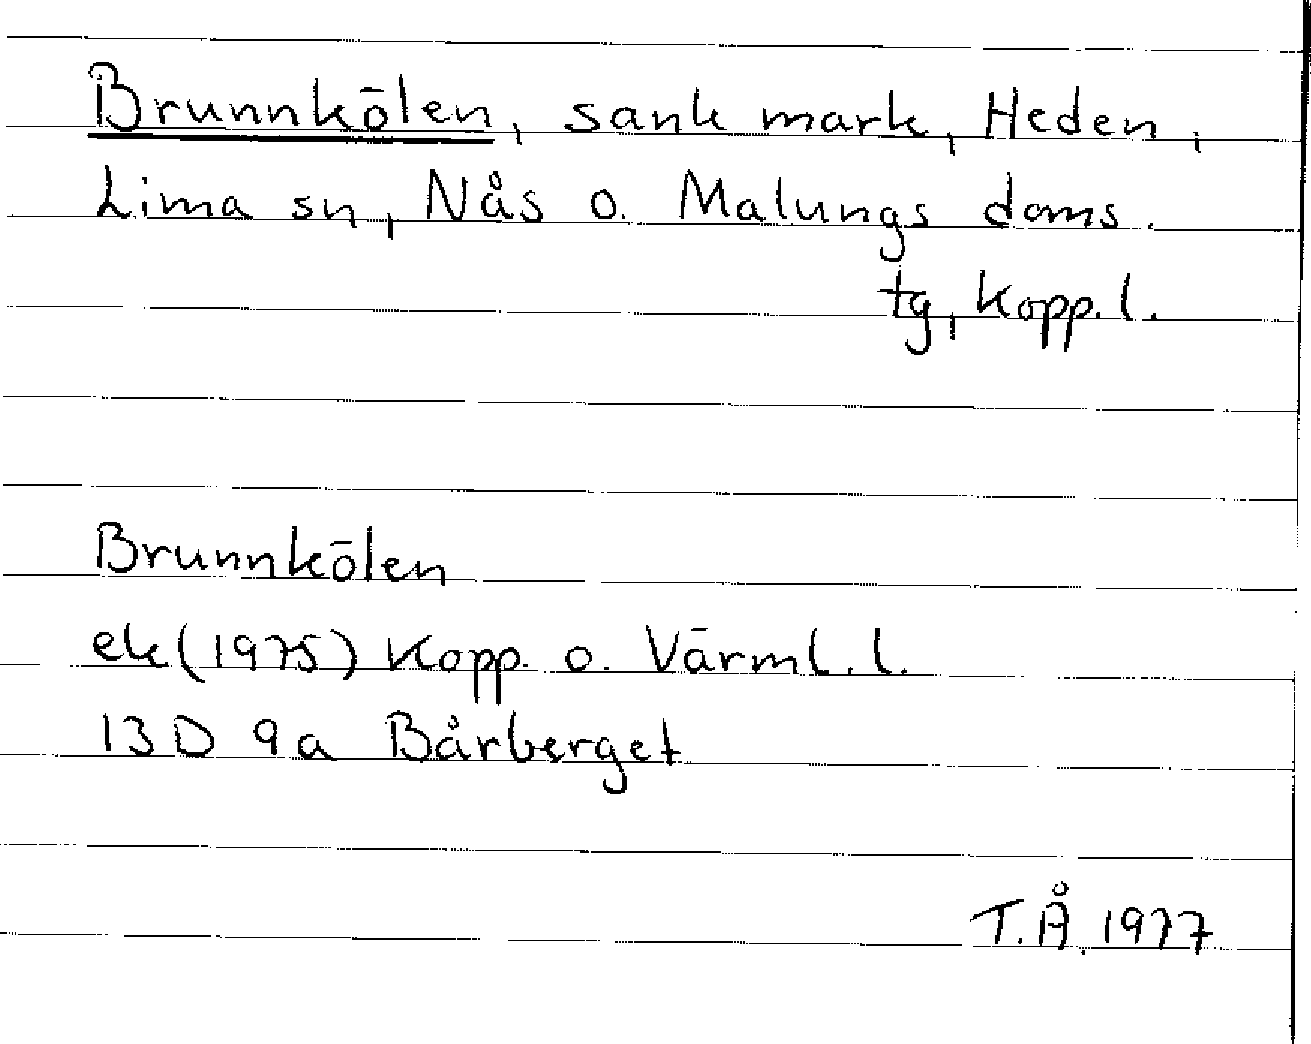 Brunnkölen, sank mark, Heden,
Lima sn, Nås o. Malungs doms.
tg, Kopp. l.
Brunnkölen
ek (1975) Kopp. o. Värml. l.
13 D 9a Bårberget
T.Å. 1977